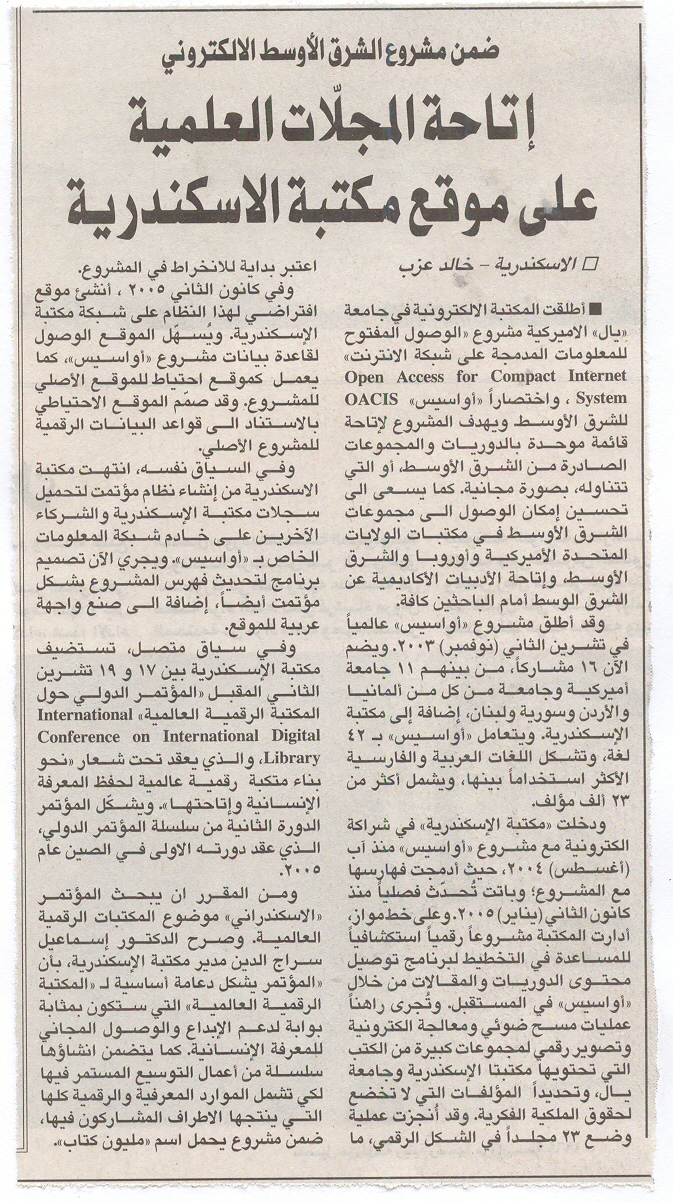 ضمن مشروع الشرق الأوسط الالكتروني
إتاحة المجلّات العلمية
على موقع مكتبة الاسكندرية
□ الاسكندرية – خالد عزب
■ أطلقت المكتبة الالكترونية في جامعة
«يال» الاميركية مشروع «الوصول المفتوح
للمعلومات المدمجة على شبكة الانترنت»
Open Access for Compact Internet
System ، واختصاراً «أواسيس» OACIS
للشرق الأوسط ويهدف المشروع لإتاحة
قائمة موحدة بالدوريات والمجموعات
الصادرة من الشرق الأوسط، أو التي
تتناوله، بصورة مجانية. كما يسعى الى
تحسين إمكان الوصول الى مجموعات
الشرق الأوسط في مكتبات الولايات
المتحدة الأميركية وأوروبا والشرق
الأوسط، وإتاحة الأدبيات الأكاديمية عن
الشرق الوسط أمام الباحثين كافة.
وقد أطلق مشروع «أواسيس» عالمياً
في تشرين الثاني (نوفمبر) ٢٠٠٣. ويضم
الآن ١٦ مشاركاً، من بينهم ١١ جامعة
أميركية وجامعة من كل من ألمانيا
والأردن وسورية ولبنان، إضافة إلى مكتبة
الإسكندرية. ويتعامل «أواسيس» بـ ٤٢
لغة، وتشكل اللغات العربية والفارسية
الأكثر استخداماً بينها، ويشمل أكثر من
٢٣ ألف مؤلف.
ودخلت «مكتبة الإسكندرية» في شراكة
الكترونية مع مشروع «أواسيس» منذ آب
(أغسطس) ٢٠٠٤، حيث أدمجت فهارسها
مع المشروع؛ وباتت تُحدّث فصلياً منذ
كانون الثاني (يناير) ٢٠٠٥. وعلى خط مواز،
أدارت المكتبة مشروعاً رقمياً استكشافياً
للمساعدة في التخطيط لبرنامج توصيل
محتوى الدوريات والمقالات من خلال
«أواسيس» في المستقبل. وتُجرى راهناً
عمليات مسح ضوئي ومعالجة الكترونية
وتصوير رقمي لمجموعات كبيرة من الكتب
التي تحتويها مكتبتا الإسكندرية وجامعة
يال، وتحديداً المؤلفات التي لا تخضع
لحقوق الملكية الفكرية. وقد أُنجزت عملية
وضع ٢٣ مجلداً في الشكل الرقمي، ما
اعتبر بداية للانخراط في المشروع.
وفي كانون الثاني ٢٠٠٥ ، أنشئ موقع
افتراضي لهذا النظام على شبكة مكتبة
الإسكندرية. ويُسهّل الموقع الوصول
لقاعدة بيانات مشروع «أواسيس»، كما
يعمل كموقع احتياط للموقع الأصلي
للمشروع. وقد صمّم الموقع الاحتياطي
بالاستناد الى قواعد البيانات الرقمية
للمشروع الأصلي.
وفي السياق نفسه، انتهت مكتبة
الاسكندرية من إنشاء نظام مؤتمت لتحميل
سجلات مكتبة الإسكندرية والشركاء
الآخرين على خادم شبكة المعلومات
الخاص بـ «أواسيس». ويجري الآن تصميم
برنامج لتحديث فهرس المشروع بشكل
مؤتمت أيضاً، إضافة الى صنع واجهة
عربية للموقع.
وفي سياق متصل، تستضيف
مكتبة الإسكندرية بين ١٧ و ١٩ تشرين
الثاني المقبل «المؤتمر الدولي حول
المكتبة الرقمية العالمية» International
Conference on International Digital
Library، والذي يعقد تحت شعار «نحو
بناء متكبة رقمية عالمية لحفظ المعرفة
الإنسانية وإتاحتها». ويشكّل المؤتمر
الدورة الثانية من سلسلة المؤتمر الدولي،
الذي عقد دورته الاولى في الصين عام
٢٠٠٥.
ومن المقرر ان يبحث المؤتمر
«الاسكندراني» موضوع المكتبات الرقمية
العالمية. وصرح الدكتور إسماعيل
سراج الدين مدير مكتبة الإسكندرية، بأن
«المؤتمر يشكل دعامة أساسية لـ «المكتبة
الرقمية العالمية» التي ستكون بمثابة
بوابة لدعم الإبداع والوصول المجاني
للمعرفة الإنسانية. كما يتضمن انشاؤها
سلسلة من أعمال التوسيع المستمر فيها
لكي تشمل الموارد المعرفية والرقمية كلها
التي ينتجها الاطراف المشاركون فيها،
ضمن مشروع يحمل اسم «مليون كتاب».